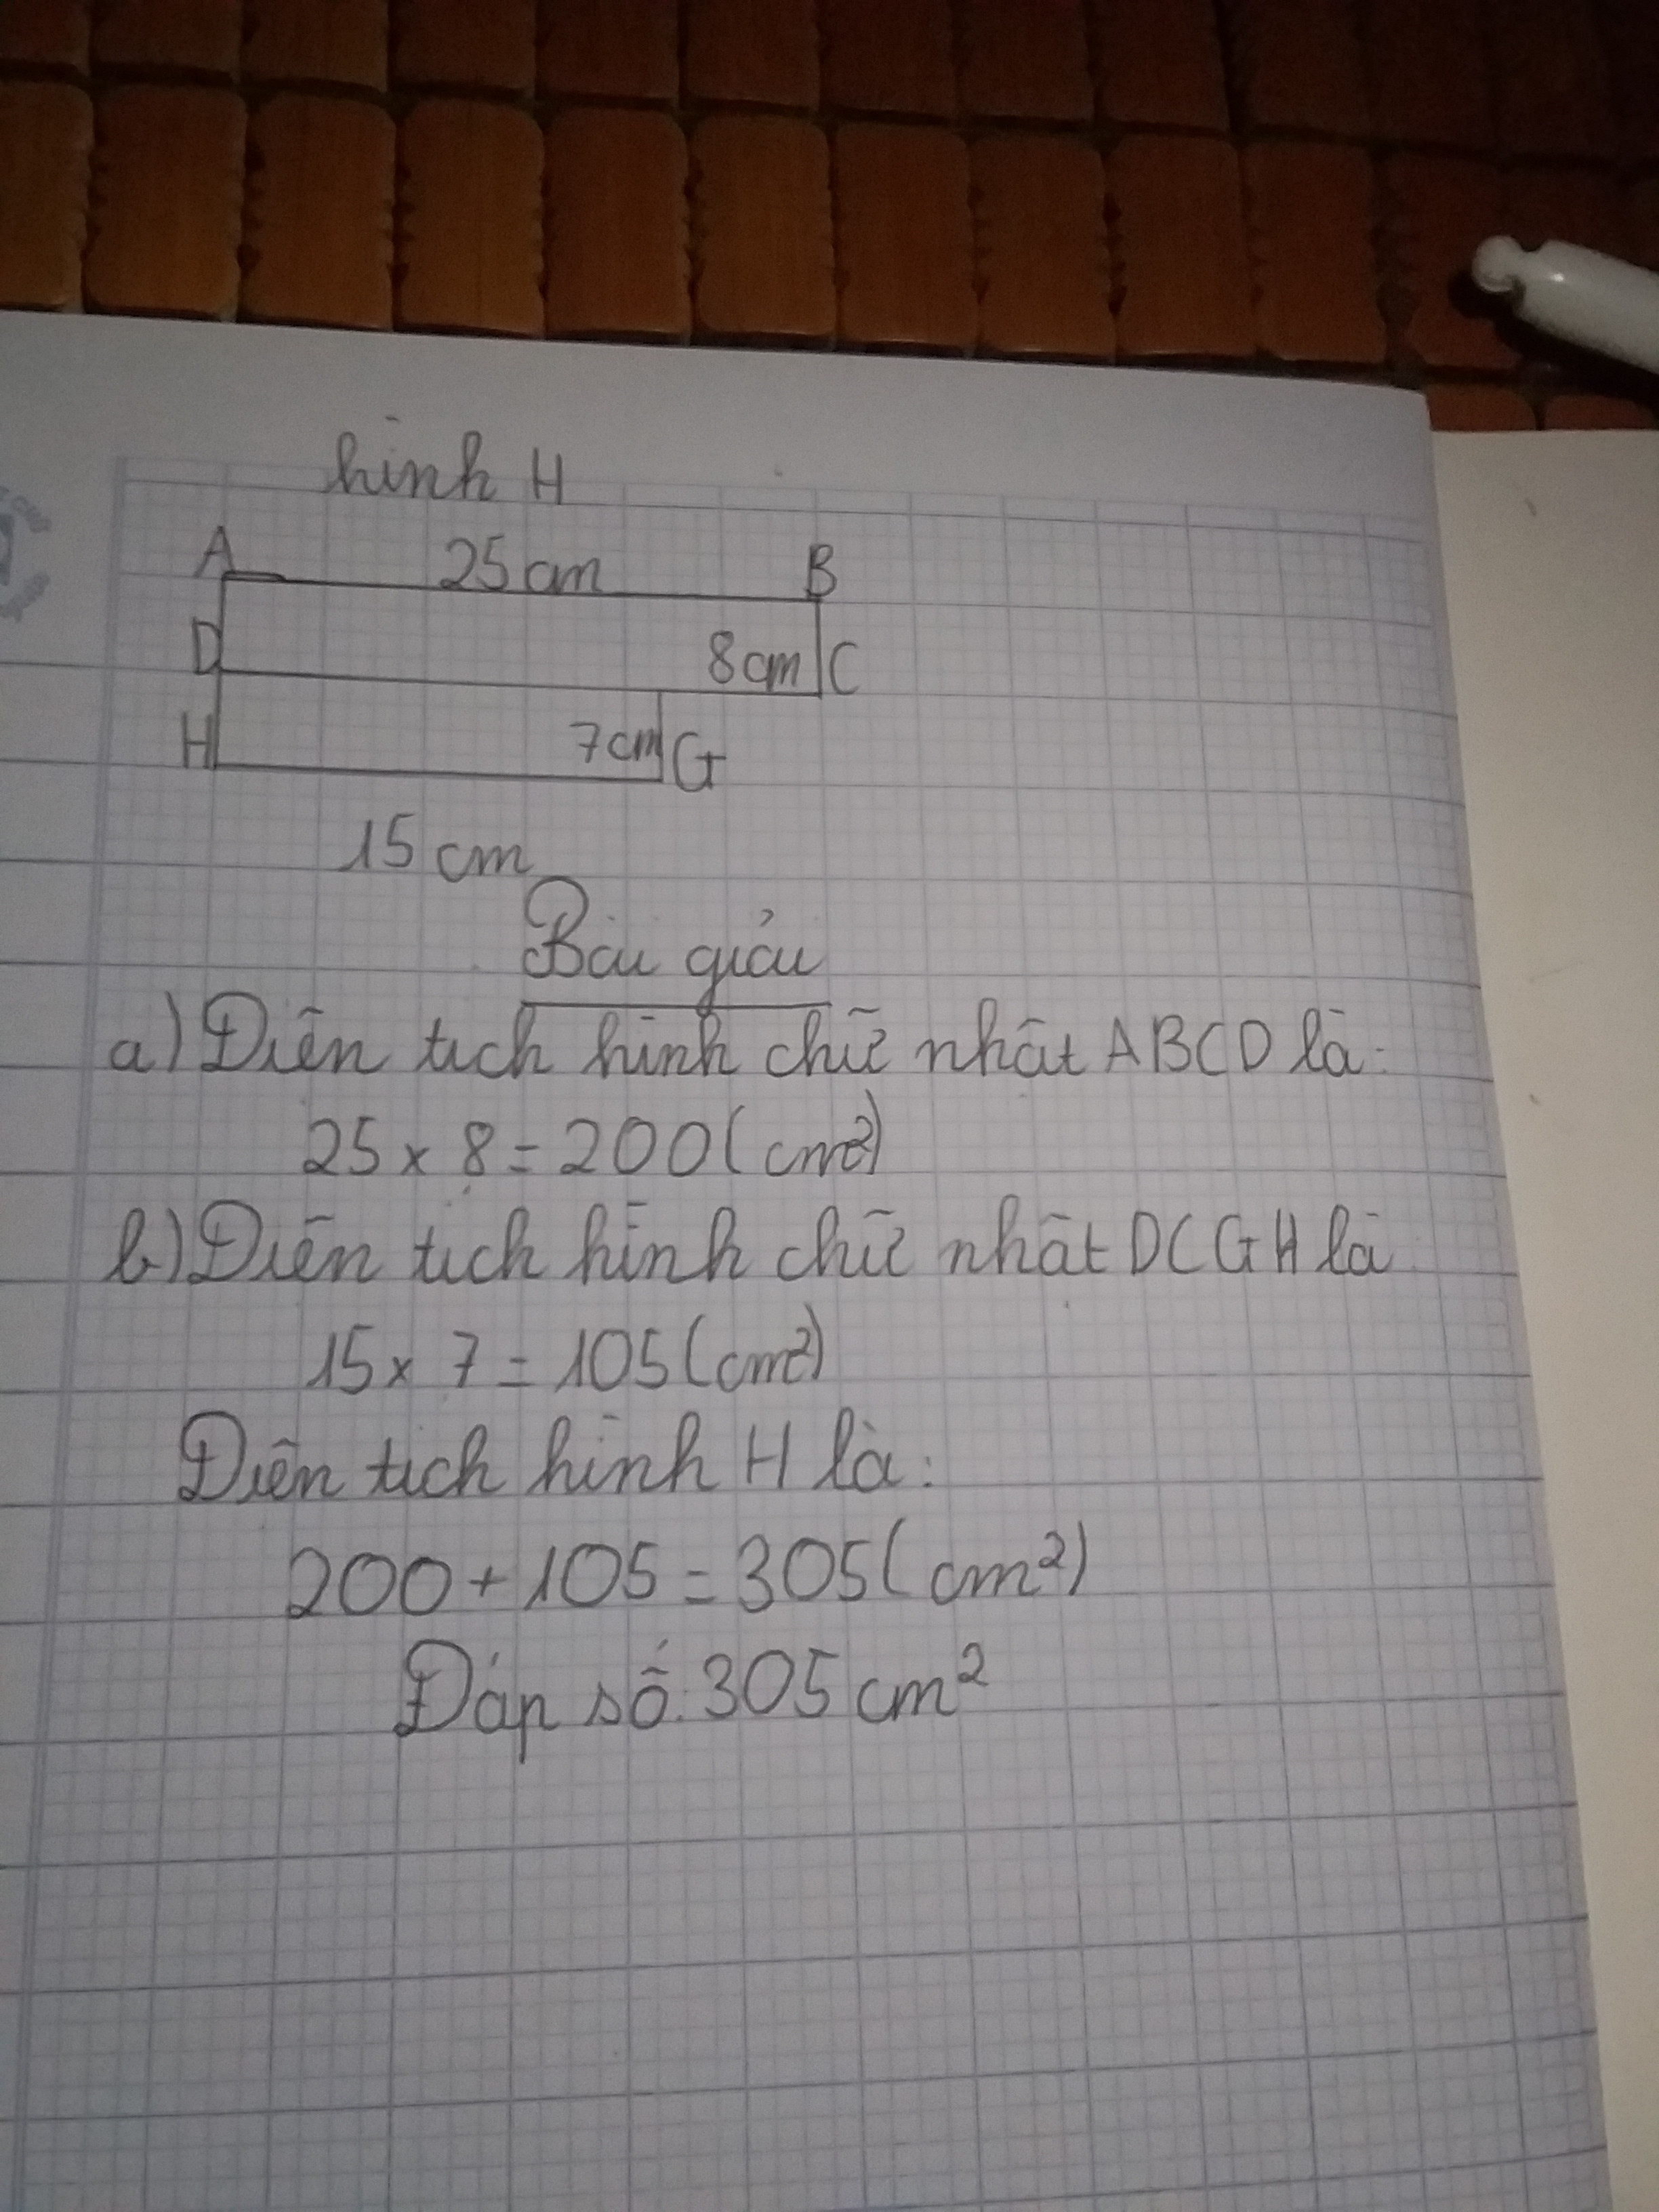 hình H
A 25cm B
D 8cm C
H 7cm G
15 cm
Bài giải
a) Diện tích hình chữ nhật ABCD là:
25 x 8 = 200 (cm²)
b) Diện tích hình chữ nhật DCGH là
15 x 7 = 105 (cm²)
Diện tích hình H là:
200 + 105 = 305 (cm²)
Đáp số: 305 cm²